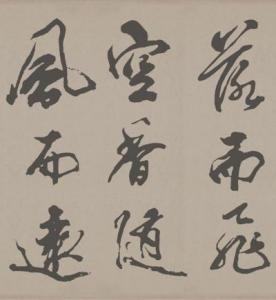 落雨飛
空香随
風而遠